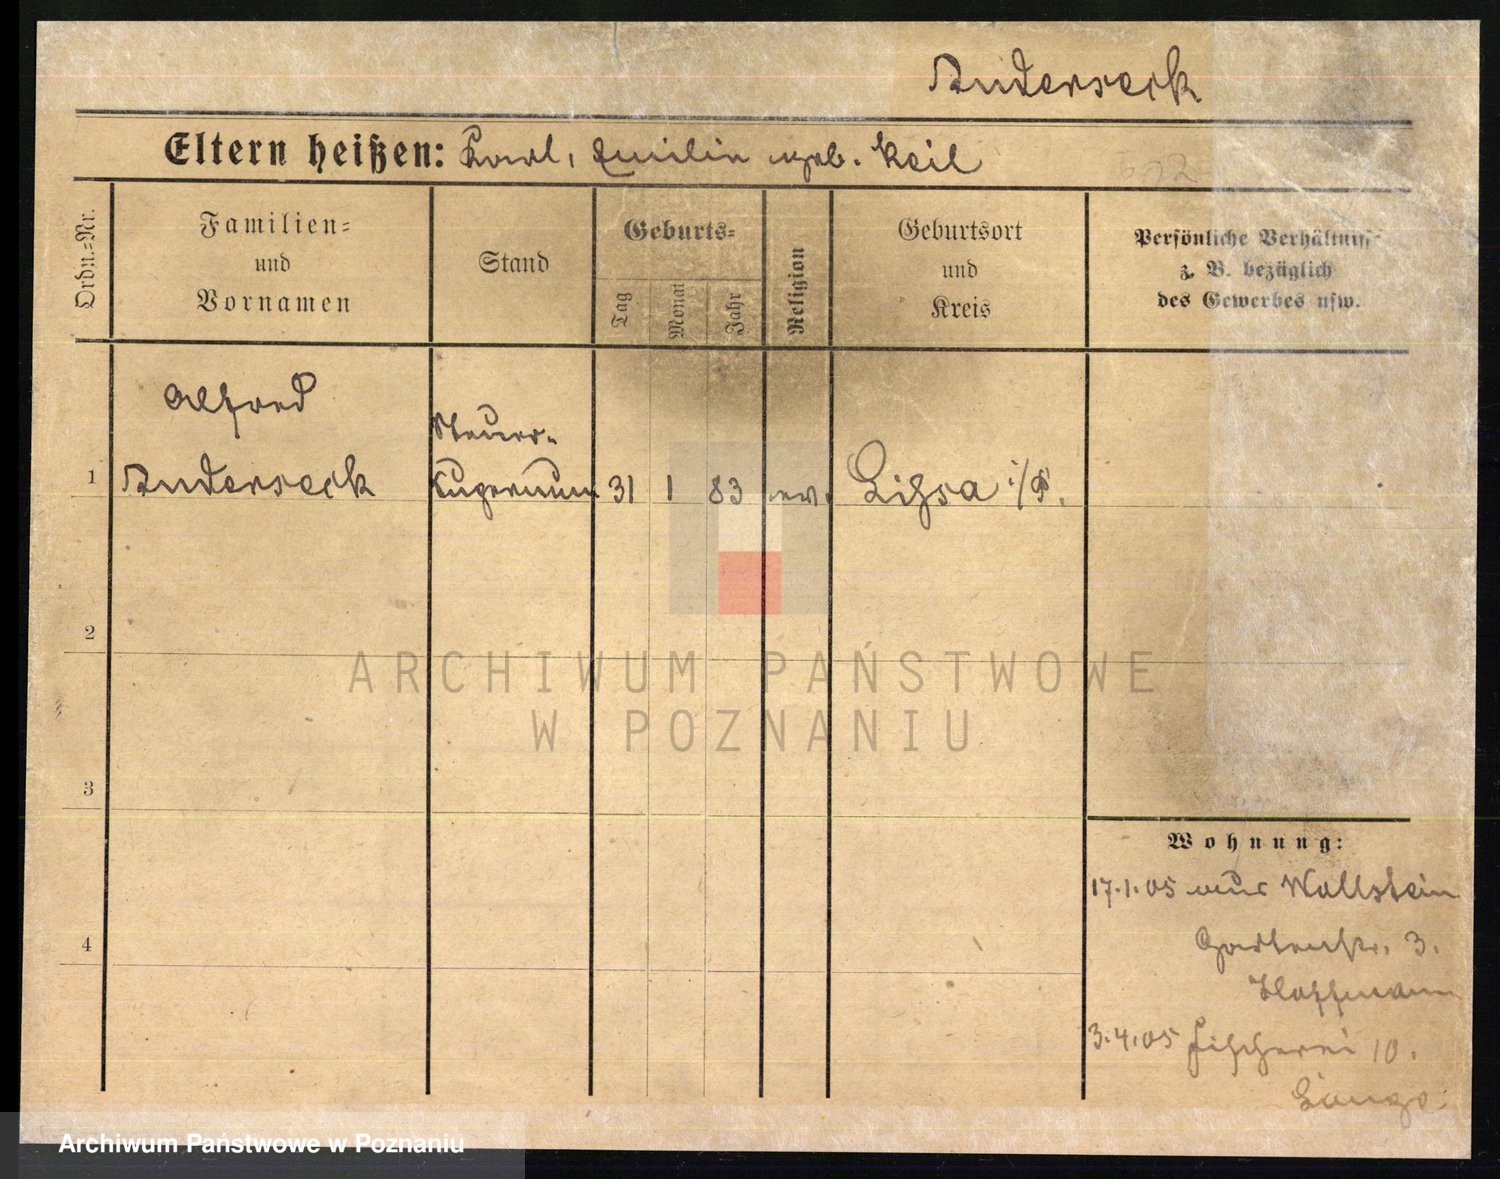 Anderseck
Eltern heißen: Karl, Emilie geb. Keil
Ordn.=Nr.
Familien=
und
Vornamen
Stand
Geburts=
Tag
Monat
Jahr
Religion
Geburtsort
und
Kreis
Persönliche Verhältniss
z. B. bezüglich
des Gewerbes usw.
Alfred
Steuer-
1 Anderseck 31 1 83 ev. Lissa i/P.
2
3
4
ARCHIWUM PAŃSTWOWE
W POZNANIU
Wohnung:
17.1.05 aus Wollstein
Gartenstr. 3.
Hoffmann
3.4.05 Fischerei 10.
Lange
Archiwum Państwowe w Poznaniu